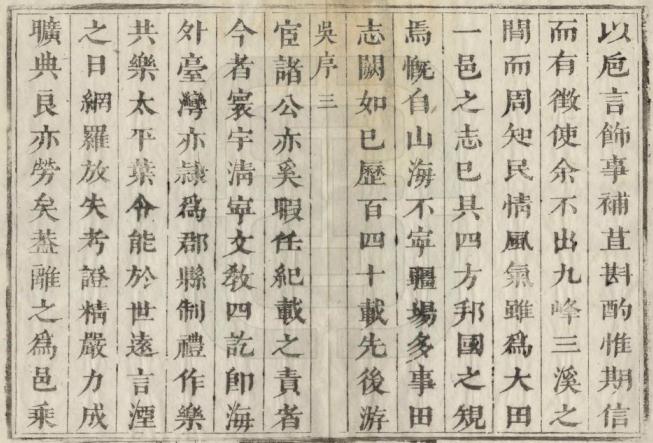 以卮言飾事補苴斟酌惟期信
而有徵使余不出九峰三溪之
間而周知民情風氣雖爲大田
一邑之志已具四方邦國之規
焉慨自山海不寧疆場多事田
志闕如已歷百四十載先後游
吳序 三
宦諸公亦奚暇任紀載之責者
今者寰宇清寧文敎四訖卽海
外臺灣亦隸爲郡縣制禮作樂
共樂太平葉令能於世遠言湮
之日網羅放失考證精嚴力成
曠典良亦勞矣葢離之爲邑乘